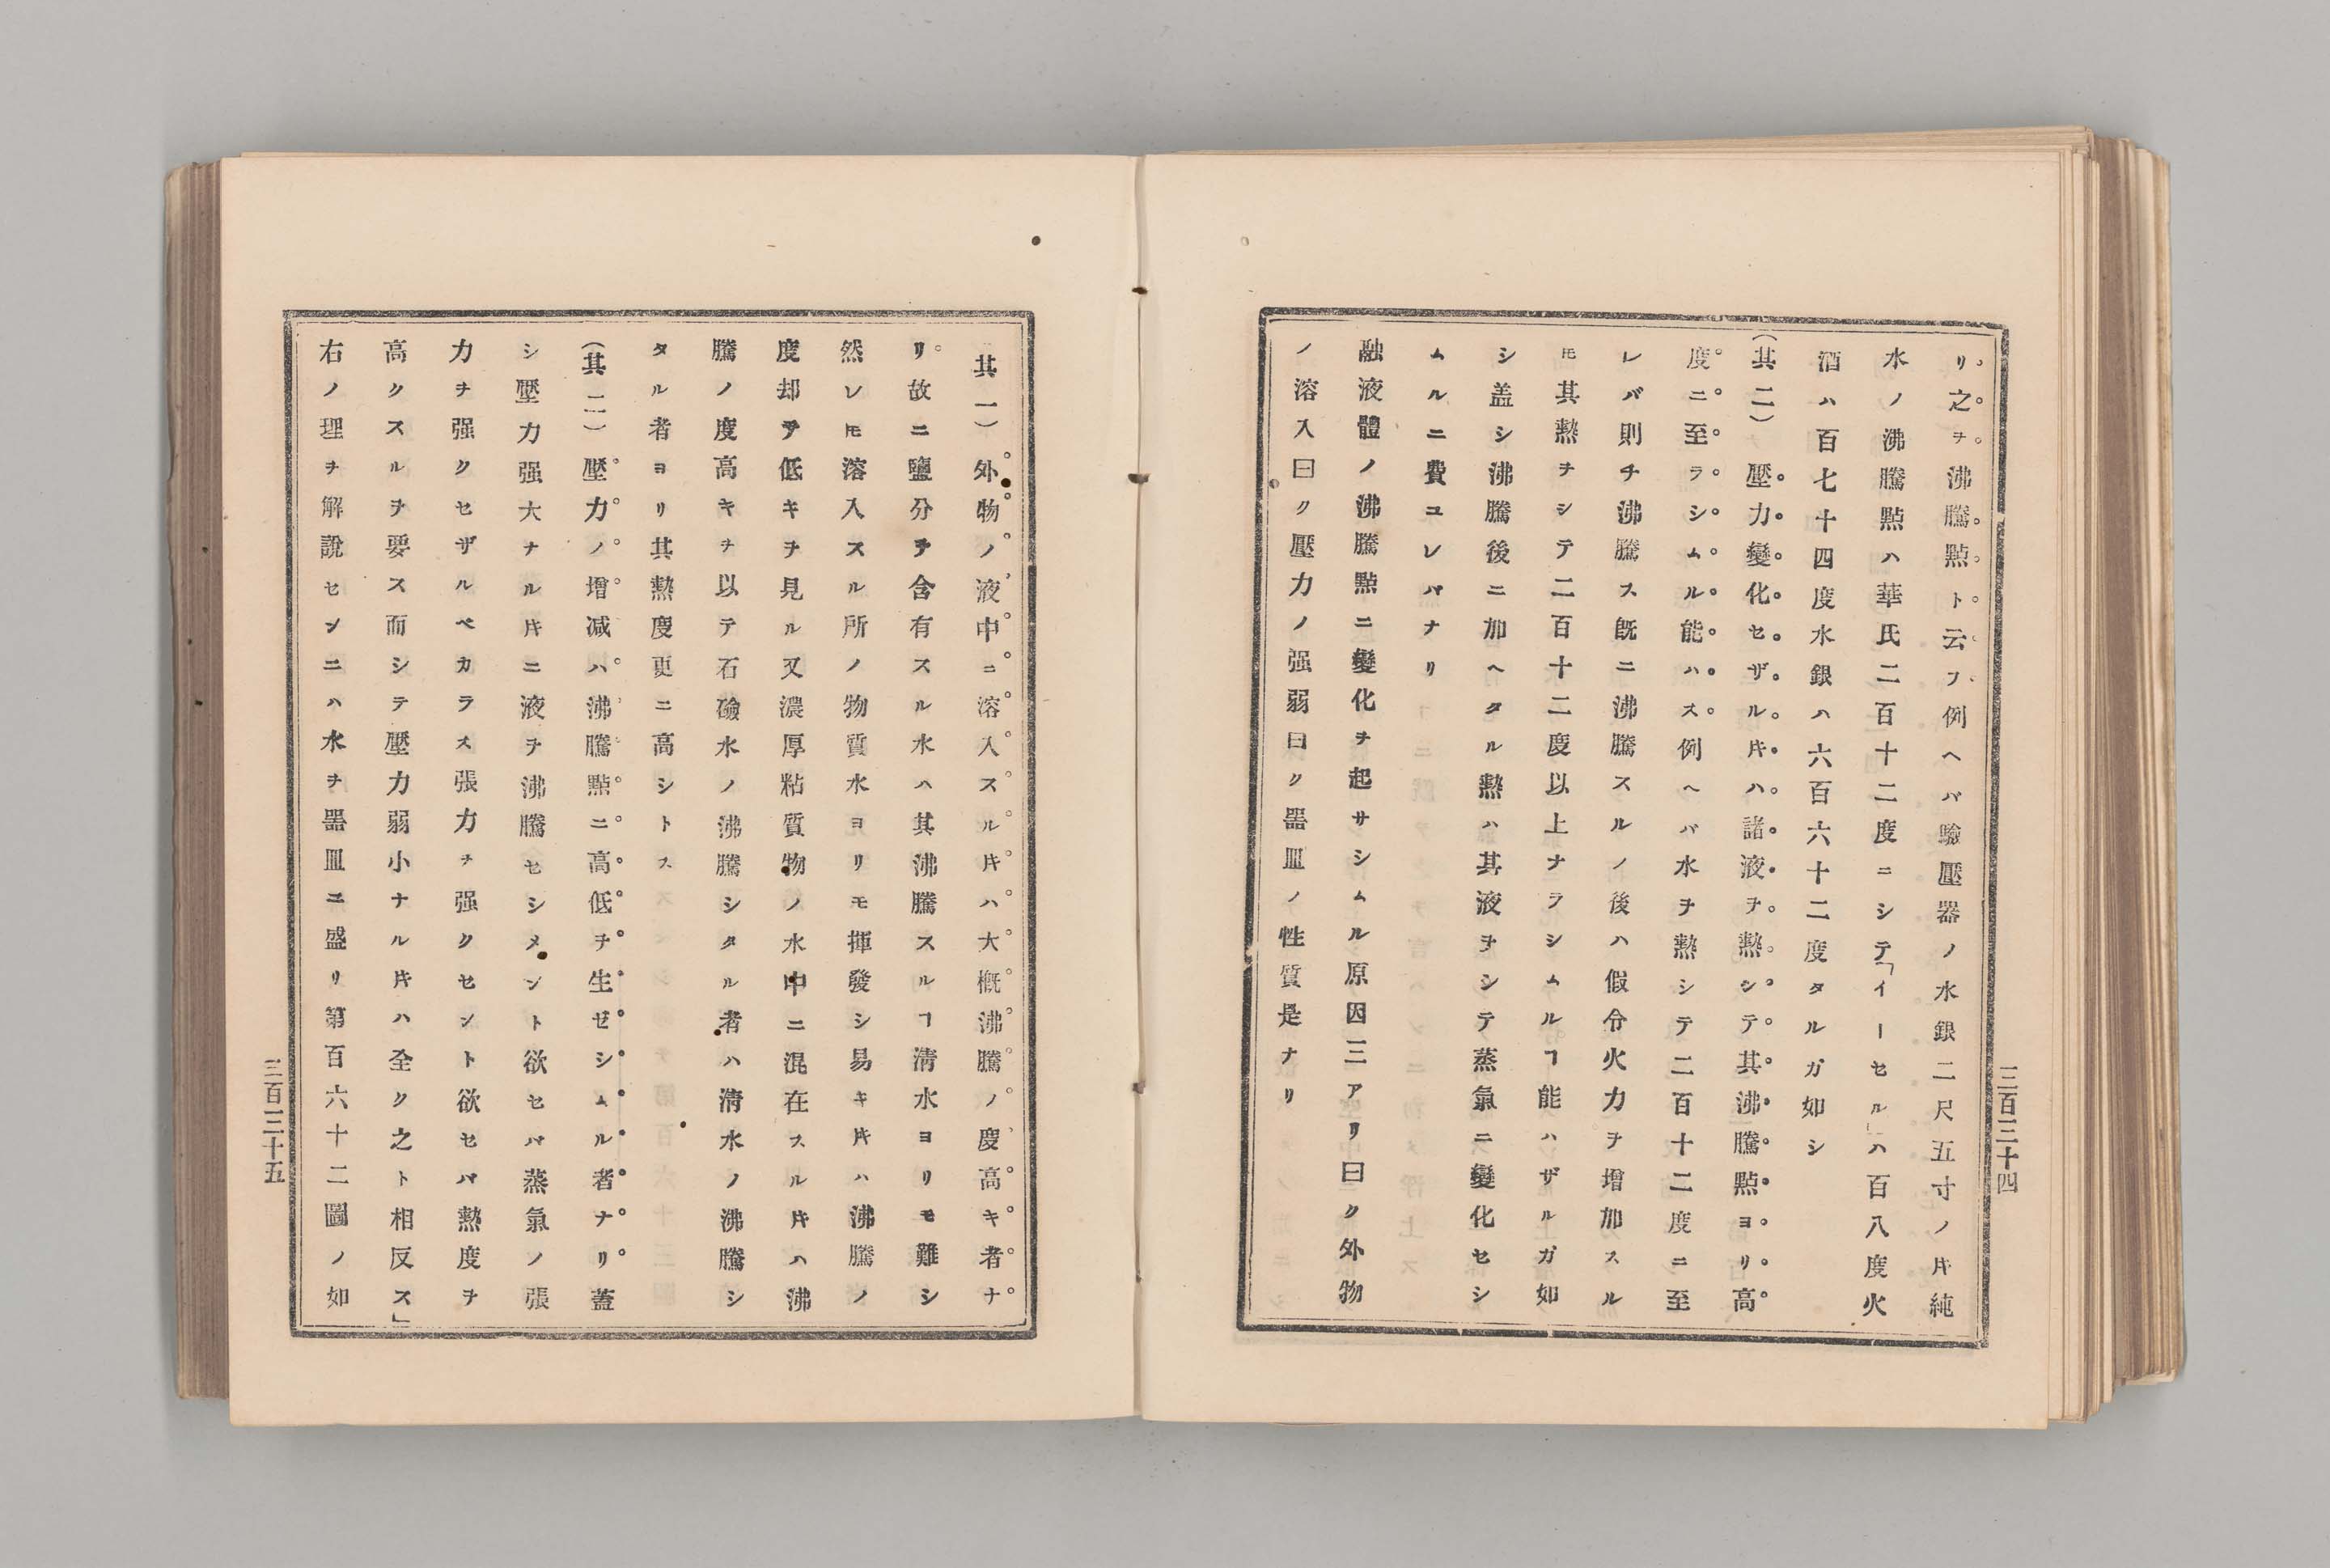 リ之ヲ沸騰點ト云フ例ヘバ驗壓器ノ水銀二尺五寸ノ𪜈純
水ノ沸騰點ハ華氏二百十二度ニシテ「イーセル」ハ百八度火
酒ハ百七十四度水銀ハ六百六十二度タルガ如シ
(其二)壓力變化セザル𪜈ハ諸液ヲ熱シテ其沸騰點ヨリ高
度ニ至ラシムル能ハス例ヘバ水ヲ熱シテ二百十二度ニ至
レバ則チ沸騰ス既ニ沸騰スルノ後ハ假令火力ヲ增加スル
𪜈其熱ヲシテ二百十二度以上ナラシムルヿ能ハザルガ如
シ盖シ沸騰後ニ加ヘタル熱ハ其液ヲシテ蒸氣ニ變化セシ
ムルニ費ユレバナリ
融液體ノ沸騰點ニ變化ヲ起サシムル原因三アリ曰ク外物
ノ溶入曰ク壓力ノ强弱曰ク器皿ノ性質是ナリ
三百三十四
其一)外物ノ液中ニ溶入スル𪜈ハ大槪沸騰ノ度高キ者ナ
リ故ニ鹽分ヲ含有スル水ハ其沸騰スルヿ淸水ヨリモ難シ
然レ𪜈溶入スル所ノ物質水ヨリモ揮發シ易キ𪜈ハ沸騰ノ
度却テ低キヲ見ル又濃厚粘質物ノ水中ニ混在スル𪜈ハ沸
騰ノ度高キヲ以テ石鹼水ノ沸騰シタル者ハ淸水ノ沸騰シ
タル者ヨリ其熱度更ニ高シトス
(其二)壓力ノ增减ハ沸騰點ニ高低ヲ生ゼシムル者ナリ蓋
シ壓力强大ナル𪜈ニ液ヲ沸騰セシメント欲セバ蒸氣ノ張
力ヲ强クセザルベカラス張力ヲ强クセント欲セバ熱度ヲ
高クスルヲ要ス而シテ壓力弱小ナル𪜈ハ全ク之ト相反ス」
右ノ理ヲ解說センニハ水ヲ器皿ニ盛リ第百六十二圖ノ如
三百三十五